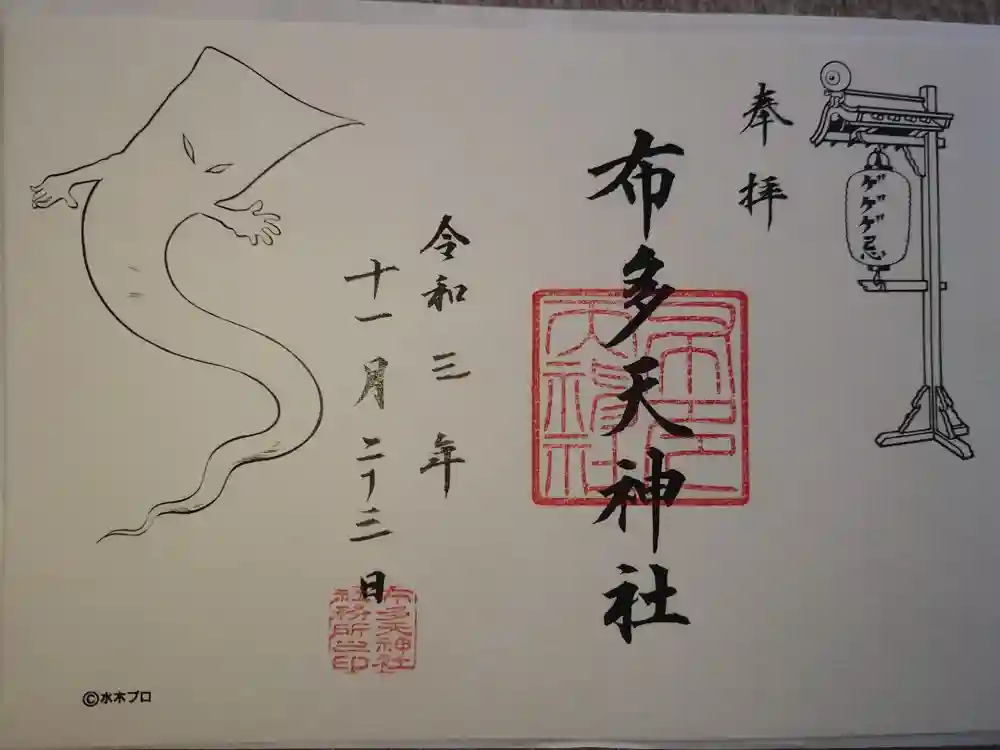 ゲゲゲ忌
奉拝
布多天神社
令和三年
十一月二十三日
布多天神社
社務所之印
©水木プロ